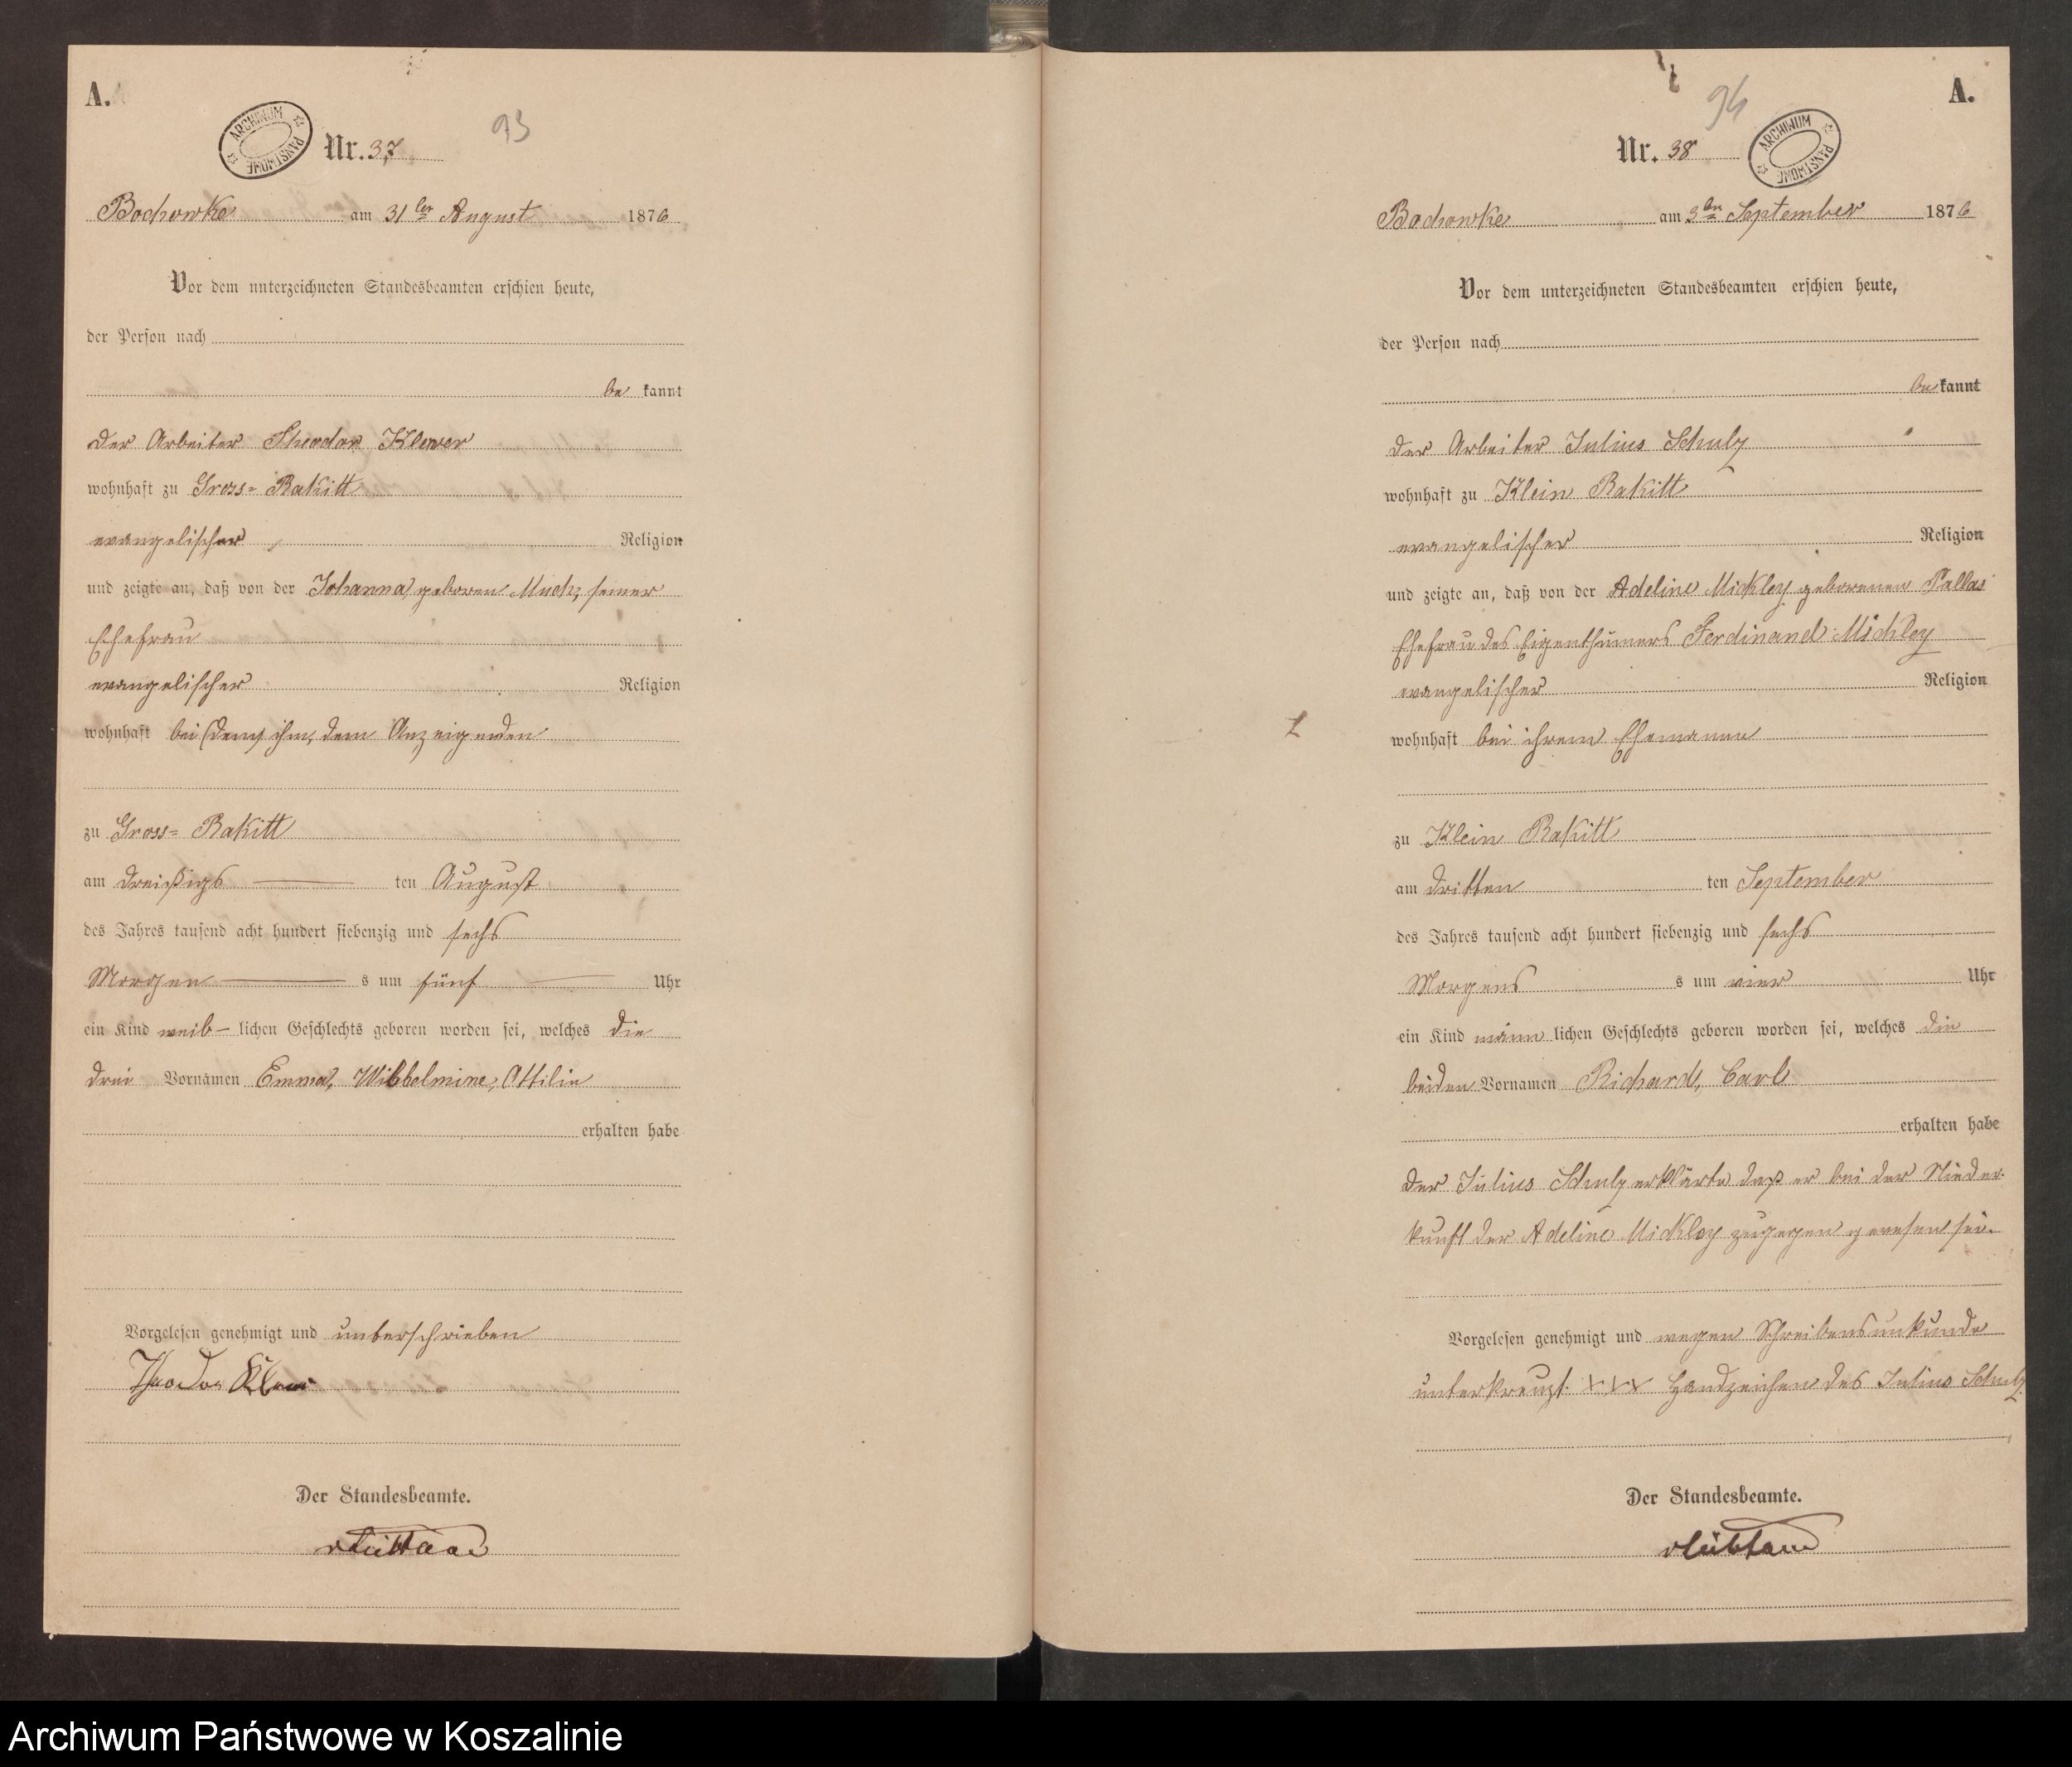 A.
ARCHIWUM PAŃSTWOWE
93
Nr. 37
Bochowke am 31ten August 1876
Vor dem unterzeichneten Standesbeamten erschien heute,
der Person nach
be kannt
der Arbeiter Theodor Klewer
wohnhaft zu Gross= Rakitt
evangelischer Religion
und zeigte an, daß von der Johanna geboren Much, seiner
Ehefrau
evangelischer Religion
wohnhaft bei (dem) ihm, dem Anzeigenden
zu Gross= Rakitt
am dreißigs ten August
des Jahres tausend acht hundert siebenzig und sechs
Morgen s um fünf Uhr
ein Kind weib- lichen Geschlechts geboren worden sei, welches die
drei Vornamen Emma, Wilhelmine, Ottilie
erhalten habe
Vorgelesen genehmigt und unterschrieben
Theodor
Der Standesbeamte.
A.
94
ARCHIWUM PAŃSTWOWE
Nr. 38
Bochowke am 3ten September 1876
Vor dem unterzeichneten Standesbeamten erschien heute,
der Person nach
be kannt
der Arbeiter Julius Schulz
wohnhaft zu Klein Rakitt
evangelischer Religion
und zeigte an, daß von der Adeline Mickley geborenen Pallas
Ehefrau des Eigenthümers Ferdinand Mickley
evangelischer Religion
wohnhaft bei ihrem Ehemanne
zu Klein Rakitt
am dritten ten September
des Jahres tausend acht hundert siebenzig und sechs
Morgens s um vier Uhr
ein Kind männ lichen Geschlechts geboren worden sei, welches die
beiden Vornamen Richard, Carl
erhalten habe
der Julius Schulz erklärte daß er bei der Nieder-
kunft der Adeline Mickley zugegen gewesen sei.
Vorgelesen genehmigt und wegen Schreibensunkunde
unterkreuzt. XXX Handzeichen des Julius Schulz
Der Standesbeamte.
Archiwum Państwowe w Koszalinie